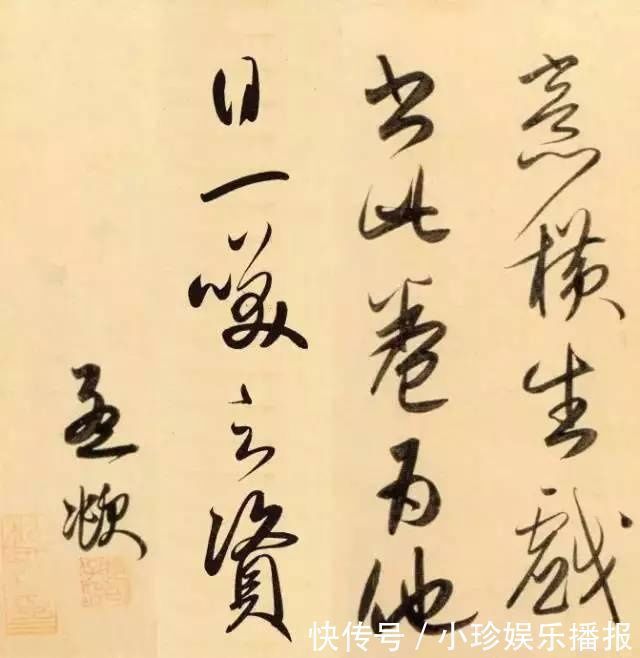 意橫生戲
書此卷為他
日一咲之資
孟頫
快传号 / 小珍娱乐播报